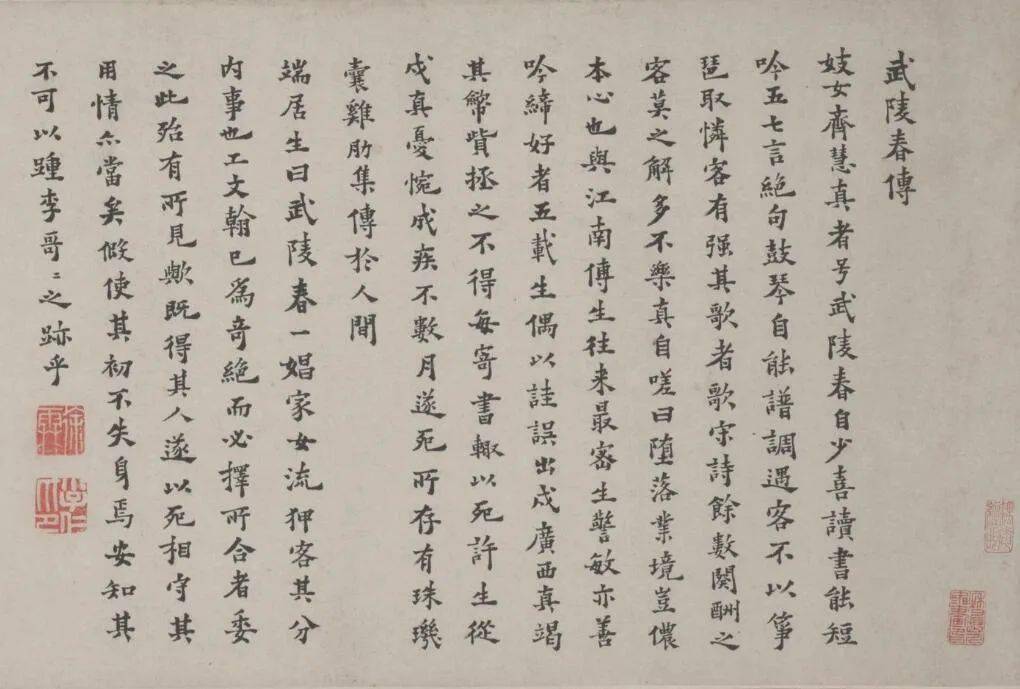 武陵春傳
妓女齊慧真者号武陵春自少喜讀書能短
吟五七言絕句鼓琴自能譜調遇客不以箏
琶取憐客有强其歌者歌宋詩餘數闋酬之
客莫之解多不樂真自嗟曰墮落業境豈儂
本心也與江南傅生往来最密生警敏亦善
吟締好者五載生偶以詿誤出戍廣西真竭
其幣貲拯之不得每寄書輙以死許生從
戍真憂惋成疾不數月遂死所存有珠璣
囊雞肋集傳於人間
端居生曰武陵春一娼家女流狎客其分
内事也工文翰已爲奇絕而必擇所合者委
之此殆有所見歟既得其人遂以死相守其
用情亦當矣假使其初不失身焉安知其
不可以踵李哥〻之跡乎